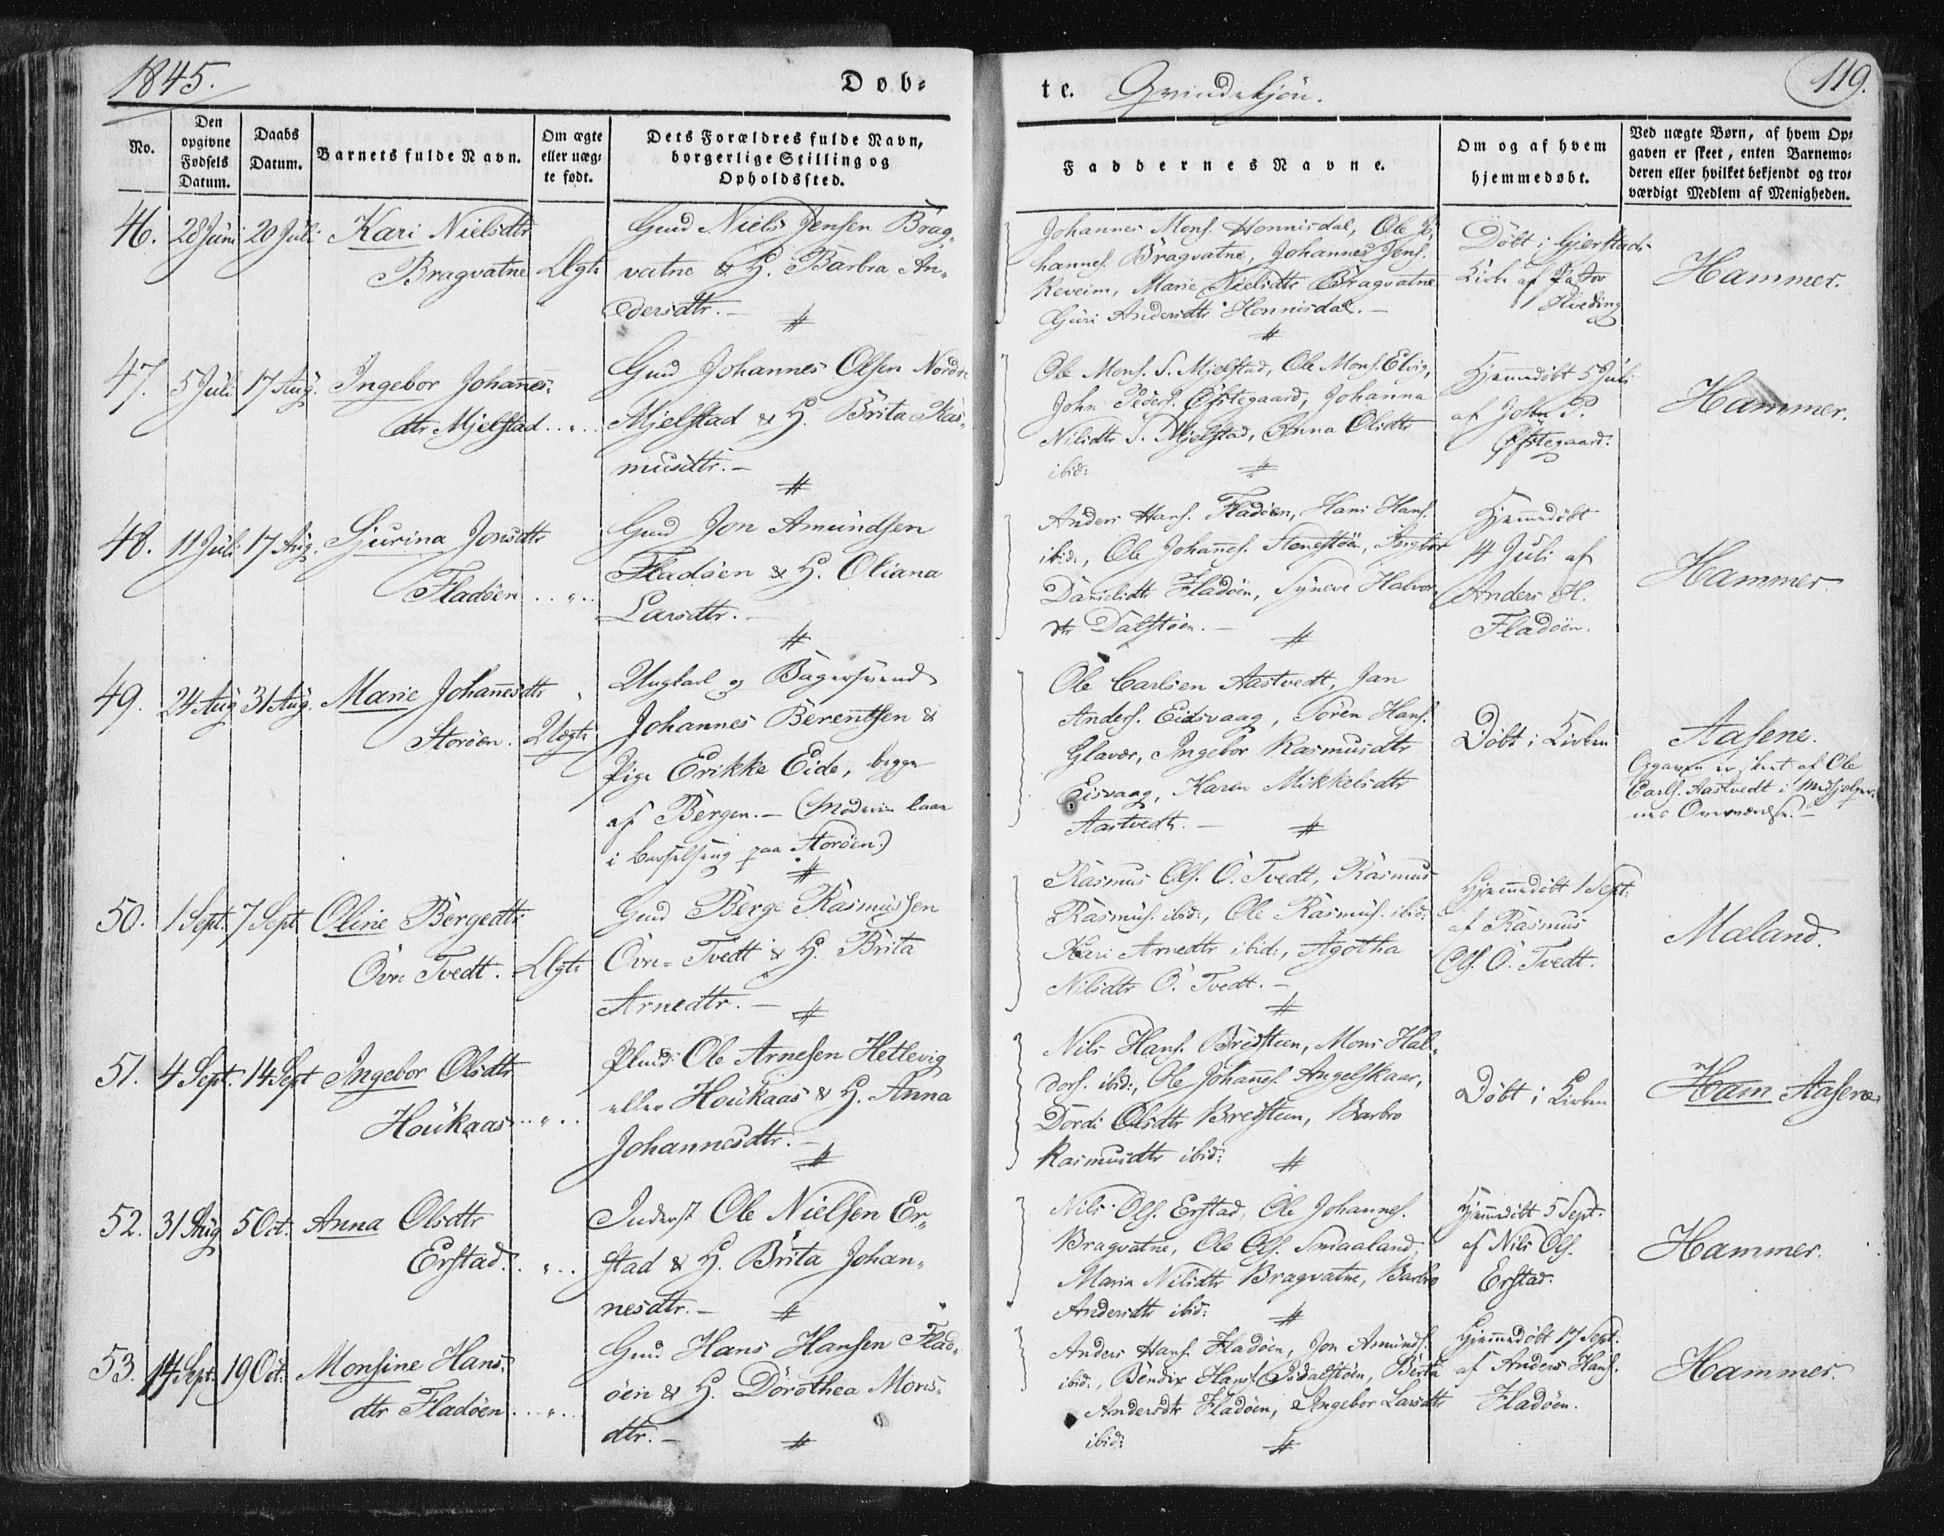 1845.
Døb-
te. Qvindekjön.
119.
No.
Den
opgivne
Fødsels
Datum.
Daabs
Datum.
Barnets fulde Navn.
Om ægte
eller uæg-
te født.
Dets Forældres fulde Navn,
borgerlige Stilling og
Opholdssted.
Faddernes Navne.
Om og af hvem
hjemmedøbt.
Ved uægte Børn, af hvem Op-
gaven er skeet, enten Barnemo-
deren eller hvilket bekjendt og tro-
værdigt Medlem af Menigheden.
46. 28 Juni 20 Juli Kari Nielsdtr
Bragvatne Ægte
Gmd Niels Jensen Brag-
vatne & H. Barbra An-
dersdtr. -
Johannes Mons. Honnisdal, Ole Jo-
hannes. Bragvatne, Johannes Jens.
Reveim, Marie Nielsdtr Bragvatne
Guri Andersdtr Honnisdal. -
Döbt i Gjerstad-
Kirke af Pastor
Hveding
Hammer.
47. 5 Juli 17 Aug. Ingebor Johannes-
dtr Mjelstad. . „ . .
Gmd Johannes Olsen Nordre
Mjelstad & H. Brita Ras-
musdtr. -
Ole Mons. S. Mjelstad, Ole Mons. Elvig,
John Peders. Öfstegaard, Johanna
Nilsdtr S. Mjelstad, Anna Olsdtr
ibid:
Hjemmedöbt 5 Juli
af John P.
Öfstegaard.
Hammer.
48. 11 Juli 17 Aug. Sjurina Jonsdtr
Fladöen . . „ . .
Gmd Jon Amundsen
Fladöen & H. Oliana
Larsdtr. -
Anders Hans. Fladöen, Hans Hans.
ibid:, Ole Johannes. Stongstöen, Ingebor
Danielsdtr Fladöen, Syneve Halvor-
dtr Dalstöen. -
Hjemmedöbt
14 Juli af
Anders H.
Fladöen.
Hammer
49. 24 Aug 31 Aug. Marie Johannesdtr
Storöen. Uægte
Ungkarl og Bagersvend
Johannes Berentsen &
Pige Erikke Eide, begge
af Bergen. - (Moderen laae
i Barselseng paa Storöen.)
Ole Carlsen Aastvedt, Jan
Anders. Eidsvaag, Sören Hans.
Glavær, Ingebor Rasmusdtr
Eisvaag, Karen Mikkelsdtr
Aastvedt. -
Döbt i Kirken
Aasene.
Opgaven er skeet af Ole
Carls. Aastvedt i Medhjelper-
nes Overværelse. -
50. 1 Sept. 7 Sept Oline Bergedtr
Övre Tvedt. Ægte
Gmd Berge Rasmussen
Övre-Tvedt & H. Brita
Arnedtr. -
Rasmus Ols. Ö. Tvedt, Rasmus
Rasmus. ibid:, Ole Rasmus. ibid:
Kari Arnedtr ibid:, Agotha
Nilsdtr Ö. Tvedt. -
Hjemmedöbt 1 Sept.
af Rasmus
Ols. Ö. Tvedt.
Mæland.
51. 4 Sept. 14 Sept Ingebor Olsdtr
Houkaas . . „ . .
Plmd: Ole Arnesen Hetlevig
eller Houkaas & H. Anna
Johannesdtr. -
Nils Hans. Bredsteen, Mons Hal-
dors. ibid:, Ole Johannes. Angelskaar,
Dordi Olsdtr Bredsteen, Barbro
Rasmusdtr ibid:
Döbt i Kirken
Ham Aasene
52. 31 Aug 5 Oct. Anna Olsdtr
Erstad. . „ . .
Inderst Ole Nielsen Er-
stad & H. Brita Johan-
nesdtr. -
Nils Ols. Erstad, Ole Johannes.
Bragvatne, Ole Ols. Smaaland,
Maria Nilsdtr Bragvatne, Barbro
Andersdtr ibid:
Hjemmedöbt 5 Sept.
af Nils Ols.
Erstad.
Hammer.
53. 14 Sept. 19 Oct. Monsine Hans-
dtr Fladöen . . „ . .
Gmd Hans Hansen Flad-
öen & H. Dorothea Mons-
dtr. -
Anders Hans. Fladöen, Jon Amunds.
ibid:, Bendix Hans. Dalstöen, Berta
Andersdtr Fladöen, Ingebor Larsdtr
ibid:
Hjemmedöbt 17 Sept.
af Anders Hans.
Fladöen.
Hammer.